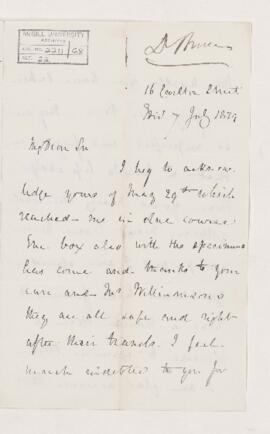 McGILL UNIVERSITY
ARCHIVES
ACC. NO. 2211 / 68
REF. 22
16 Carlton Street
Edin 7 July 1879
My Dear Sir
I beg to acknow
ledge yours of May 29th which
reached me in due course
The box also with the specimens
has come and thanks to your
care and Mr Williamson's
they are all safe and right
after their travels. I feel
much indebted to you for